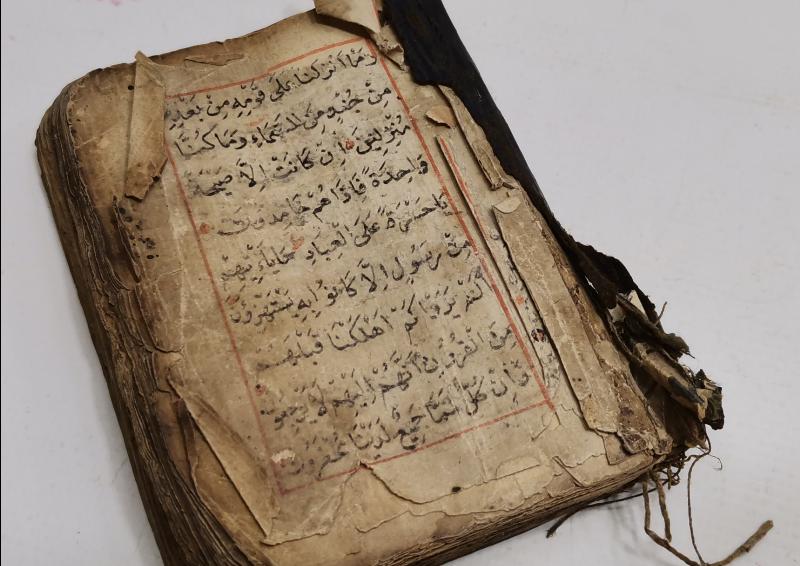 وَمَا اَنْزَلْنَا عَلَى قَوْمِهِ مِنْ بَعْدِهِ
مِنْ جُنْدٍ مِنَ السَّمَاءِ وَمَا كُنَّا
مُنْزِلِيْنَ اِنْ كَانَتْ اِلَّا صَيْحَةً
وَاحِدَةً فَاِذَا هُمْ خَامِدُونَ
يَاحَسْرَةً عَلَى الْعِبَادِ مَايَاءْتِيْهِمْ
مِنْ رَسُوْلٍ اِلَّا كَانُوْا بِهِ يَسْتَهْزِؤُنَ
اَلَمْ يَرَوْا كَمْ اَهْلَكْنَا قَبْلَهُمْ
مِنَ الْقُرُوْنِ اَنَّهُمْ اِلَيْهِمْ لَا يَرْجِعُوْنَ
وَاِنْ كُلٌّ لَمَّا جَمِيْعٌ لَدَيْنَا مُحْضَرُوْنَ